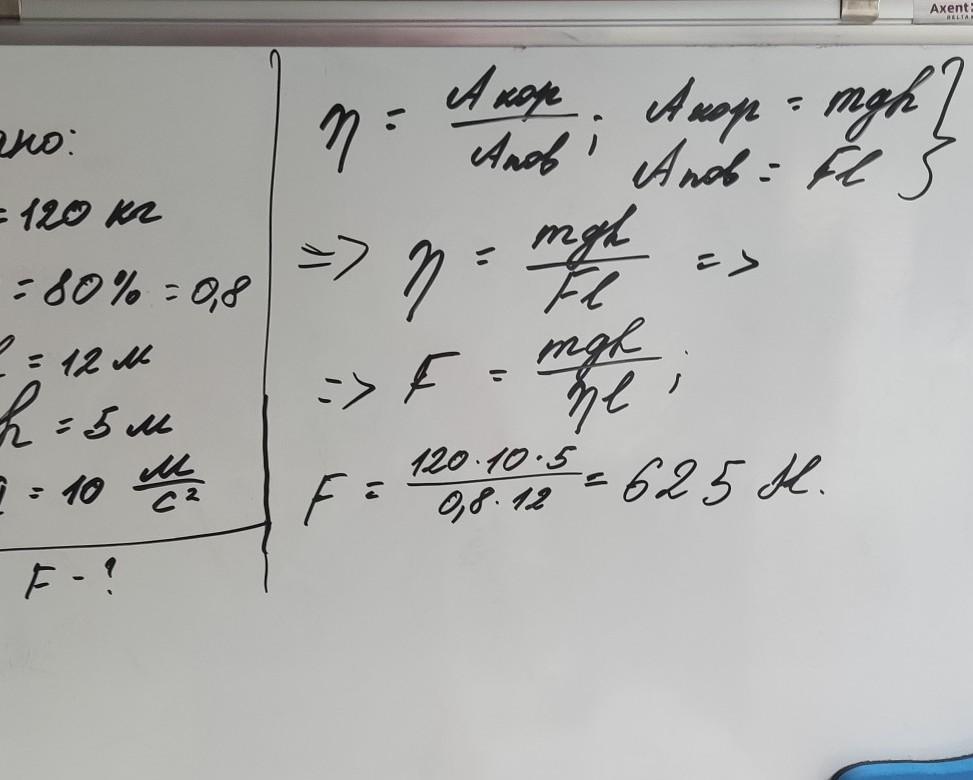 Axent
DELTA
ано:
= 120 кг
= 80% = 0,8
l = 12 м
h = 5 м
g = 10 м/с²
F - ?
η = Aкор/Aпов; Aкор = mgh }
Aпов = Fl
=> η = mgh/Fl =>
=> F = mgh/ηl;
F = 120·10·5/0,8·12 = 625 Н.